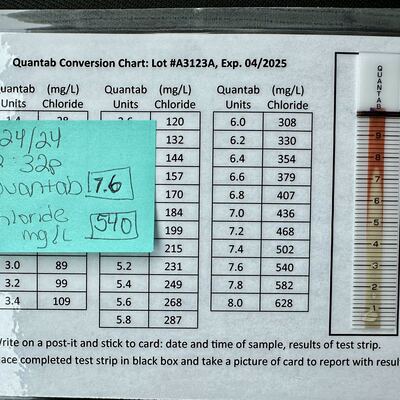 Quantab Conversion Chart: Lot #A3123A, Exp. 04/2025
Quantab (mg/L) Quantab (mg/L) Quantab (mg/L)
Units Chloride Units Chloride Units Chloride
120 6.0 308
132 6.2 330
144 6.4 354
157 6.6 379
170 6.8 407
184 7.0 436
199 7.2 468
215 7.4 502
3.0 89 5.2 231 7.6 540
3.2 99 5.4 249 7.8 582
3.4 109 5.6 268 8.0 628
5.8 287
24/24
32p
Quantab 7.6
Chloride 540
mg/L
QUANTAB
9
8
7
6
5
4
3
2
1
Write on a post-it and stick to card: date and time of sample, results of test strip.
Place completed test strip in black box and take a picture of card to report with